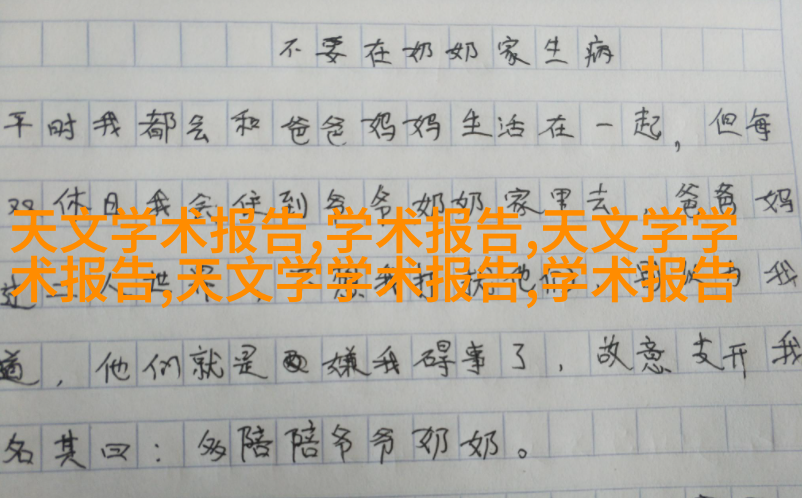 不要在奶奶家生病
平时我都会和爸爸妈妈生活在一起，但每
双休日我会住到爷爷奶奶家里去，爸爸妈
天文学术报告,学术报告,天文学学
术报告,天文学学术报告,学术报告
道，他们就是嫌我碍事了，故意支开我
名其曰：多陪陪爷爷奶奶。